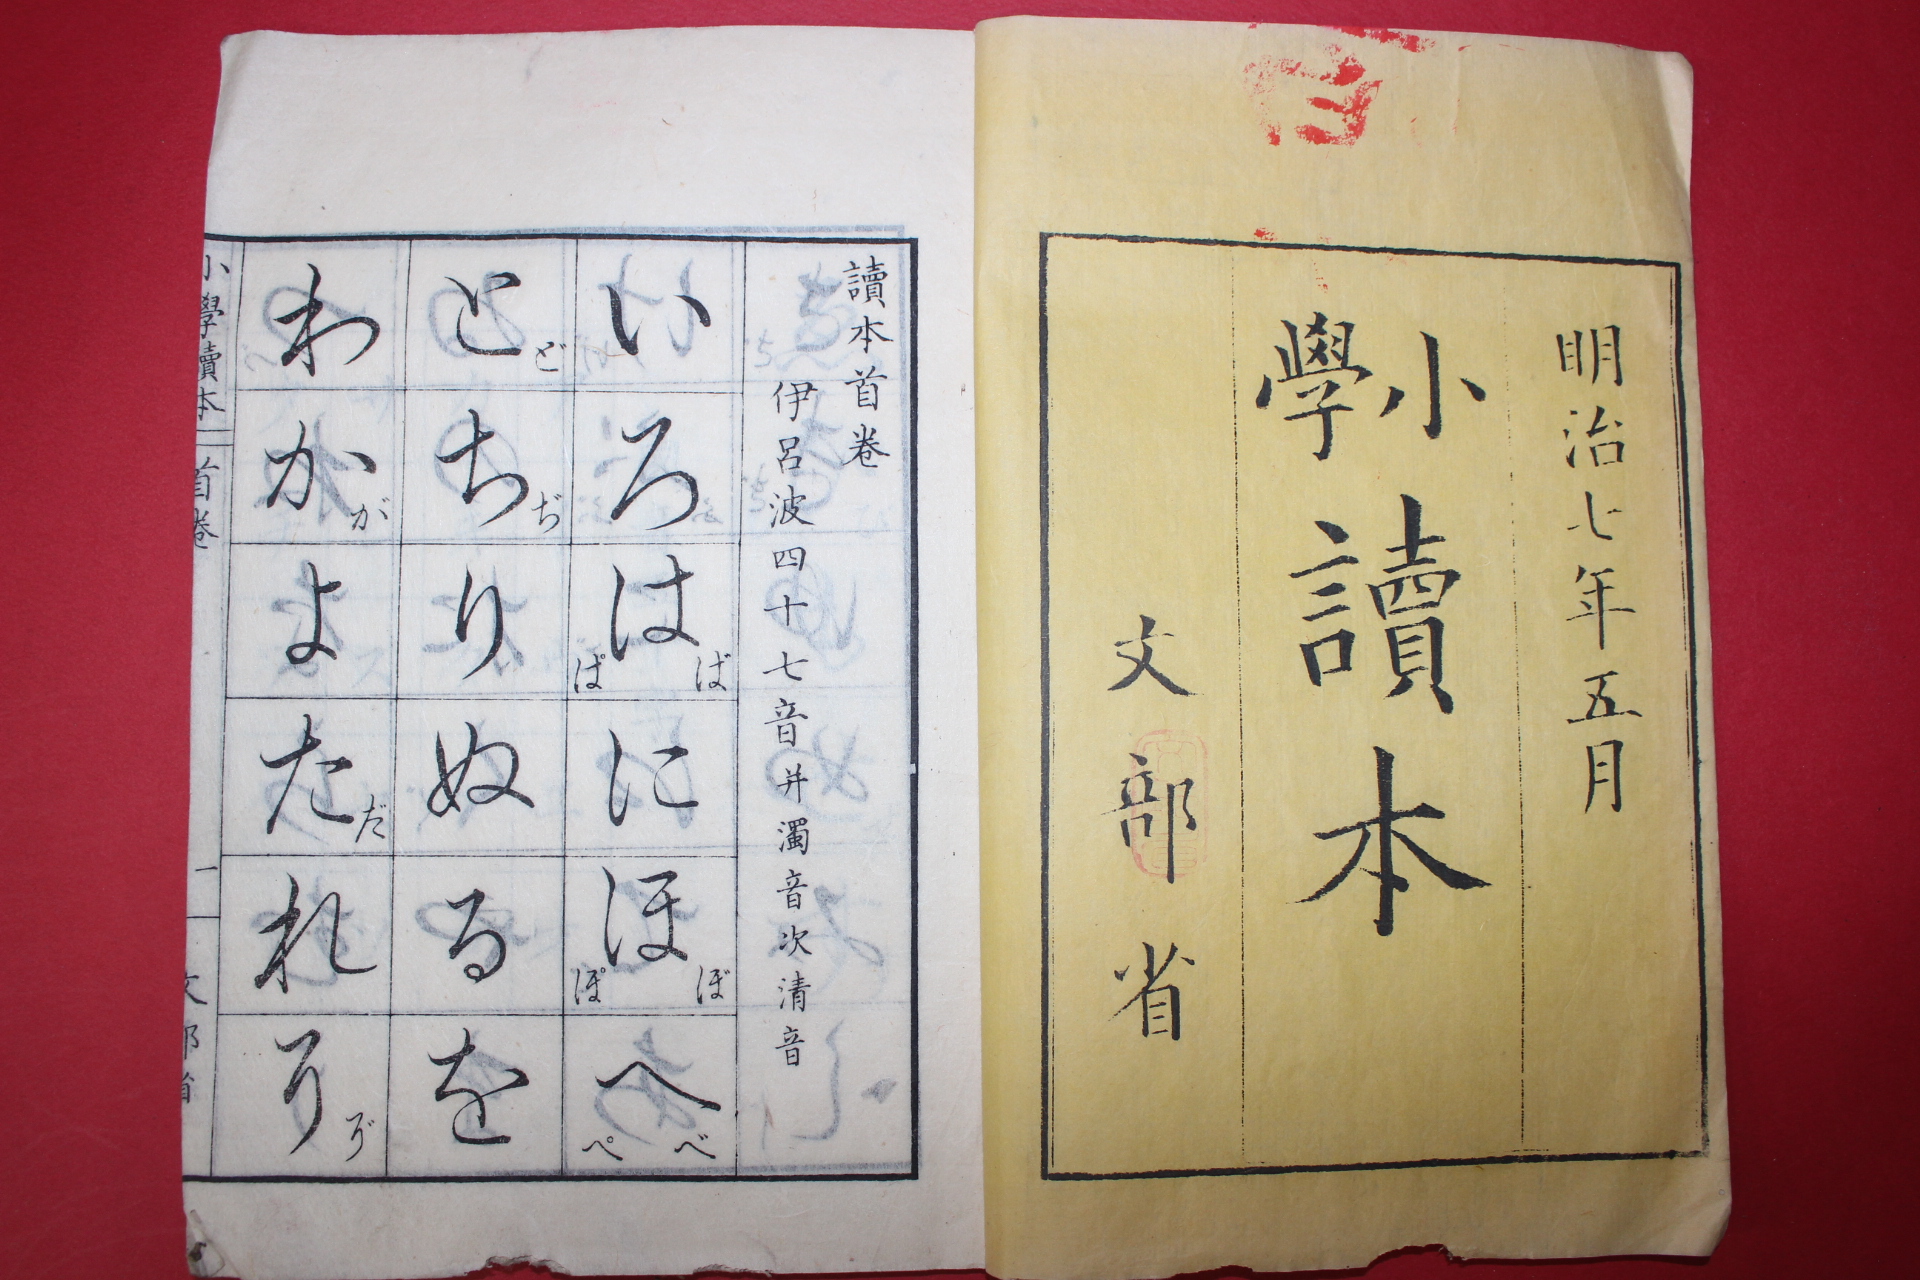 明治七年五月
小學讀本
文部省
讀本首卷
伊呂波四十七音并濁音次清音
い ろ は ば ぱ に ほ ぼ ぽ へ べ ぺ
と ど ち ぢ り ぬ る を
わ か が よ た だ れ そ ぞ
小學讀本 首卷 一 文部省